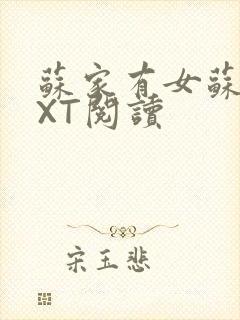 蘇家有女蘇
XT閱讀
宋玉悲